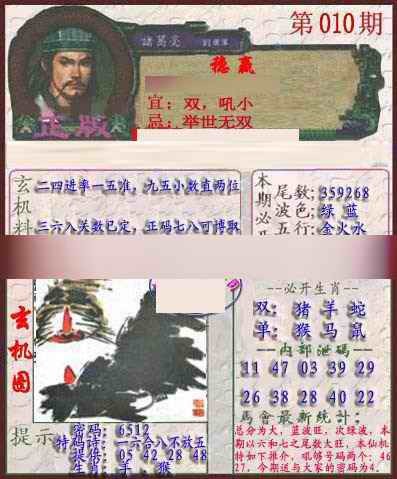 第010期
諸葛亮
稳赢
宜：双，吼小
正版
忌：举世无双
玄机料
二四进率一五准，九五小数直两位
三六八关数已定，正码七八可博取
本期必
尾数：359268
波色：绿 蓝
五行：金火水
玄机图
--必开生肖--
双：猪 羊 蛇
单：猴 马 鼠
--内部泄码--
11 47 03 39 29
26 38 28 40 22
提示
密码：6512
特码诗：一六合八不放五
提倍：05 42 28 48
生肖：羊、猴
馬會最新统计：
总分为大，蓝波旺，次绿波，本
期以六和七之尾数大旺，本仙机
特如下推介，吼够号码两个：46
27，今期送与大家的密码为4．